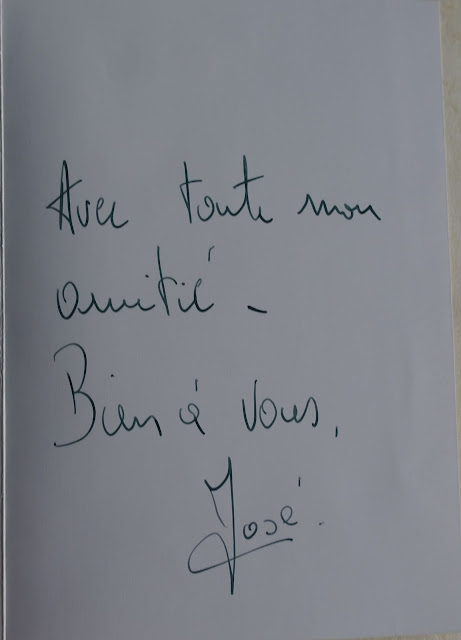 Avec toute mon
amitié -
Bien à vous,
José.